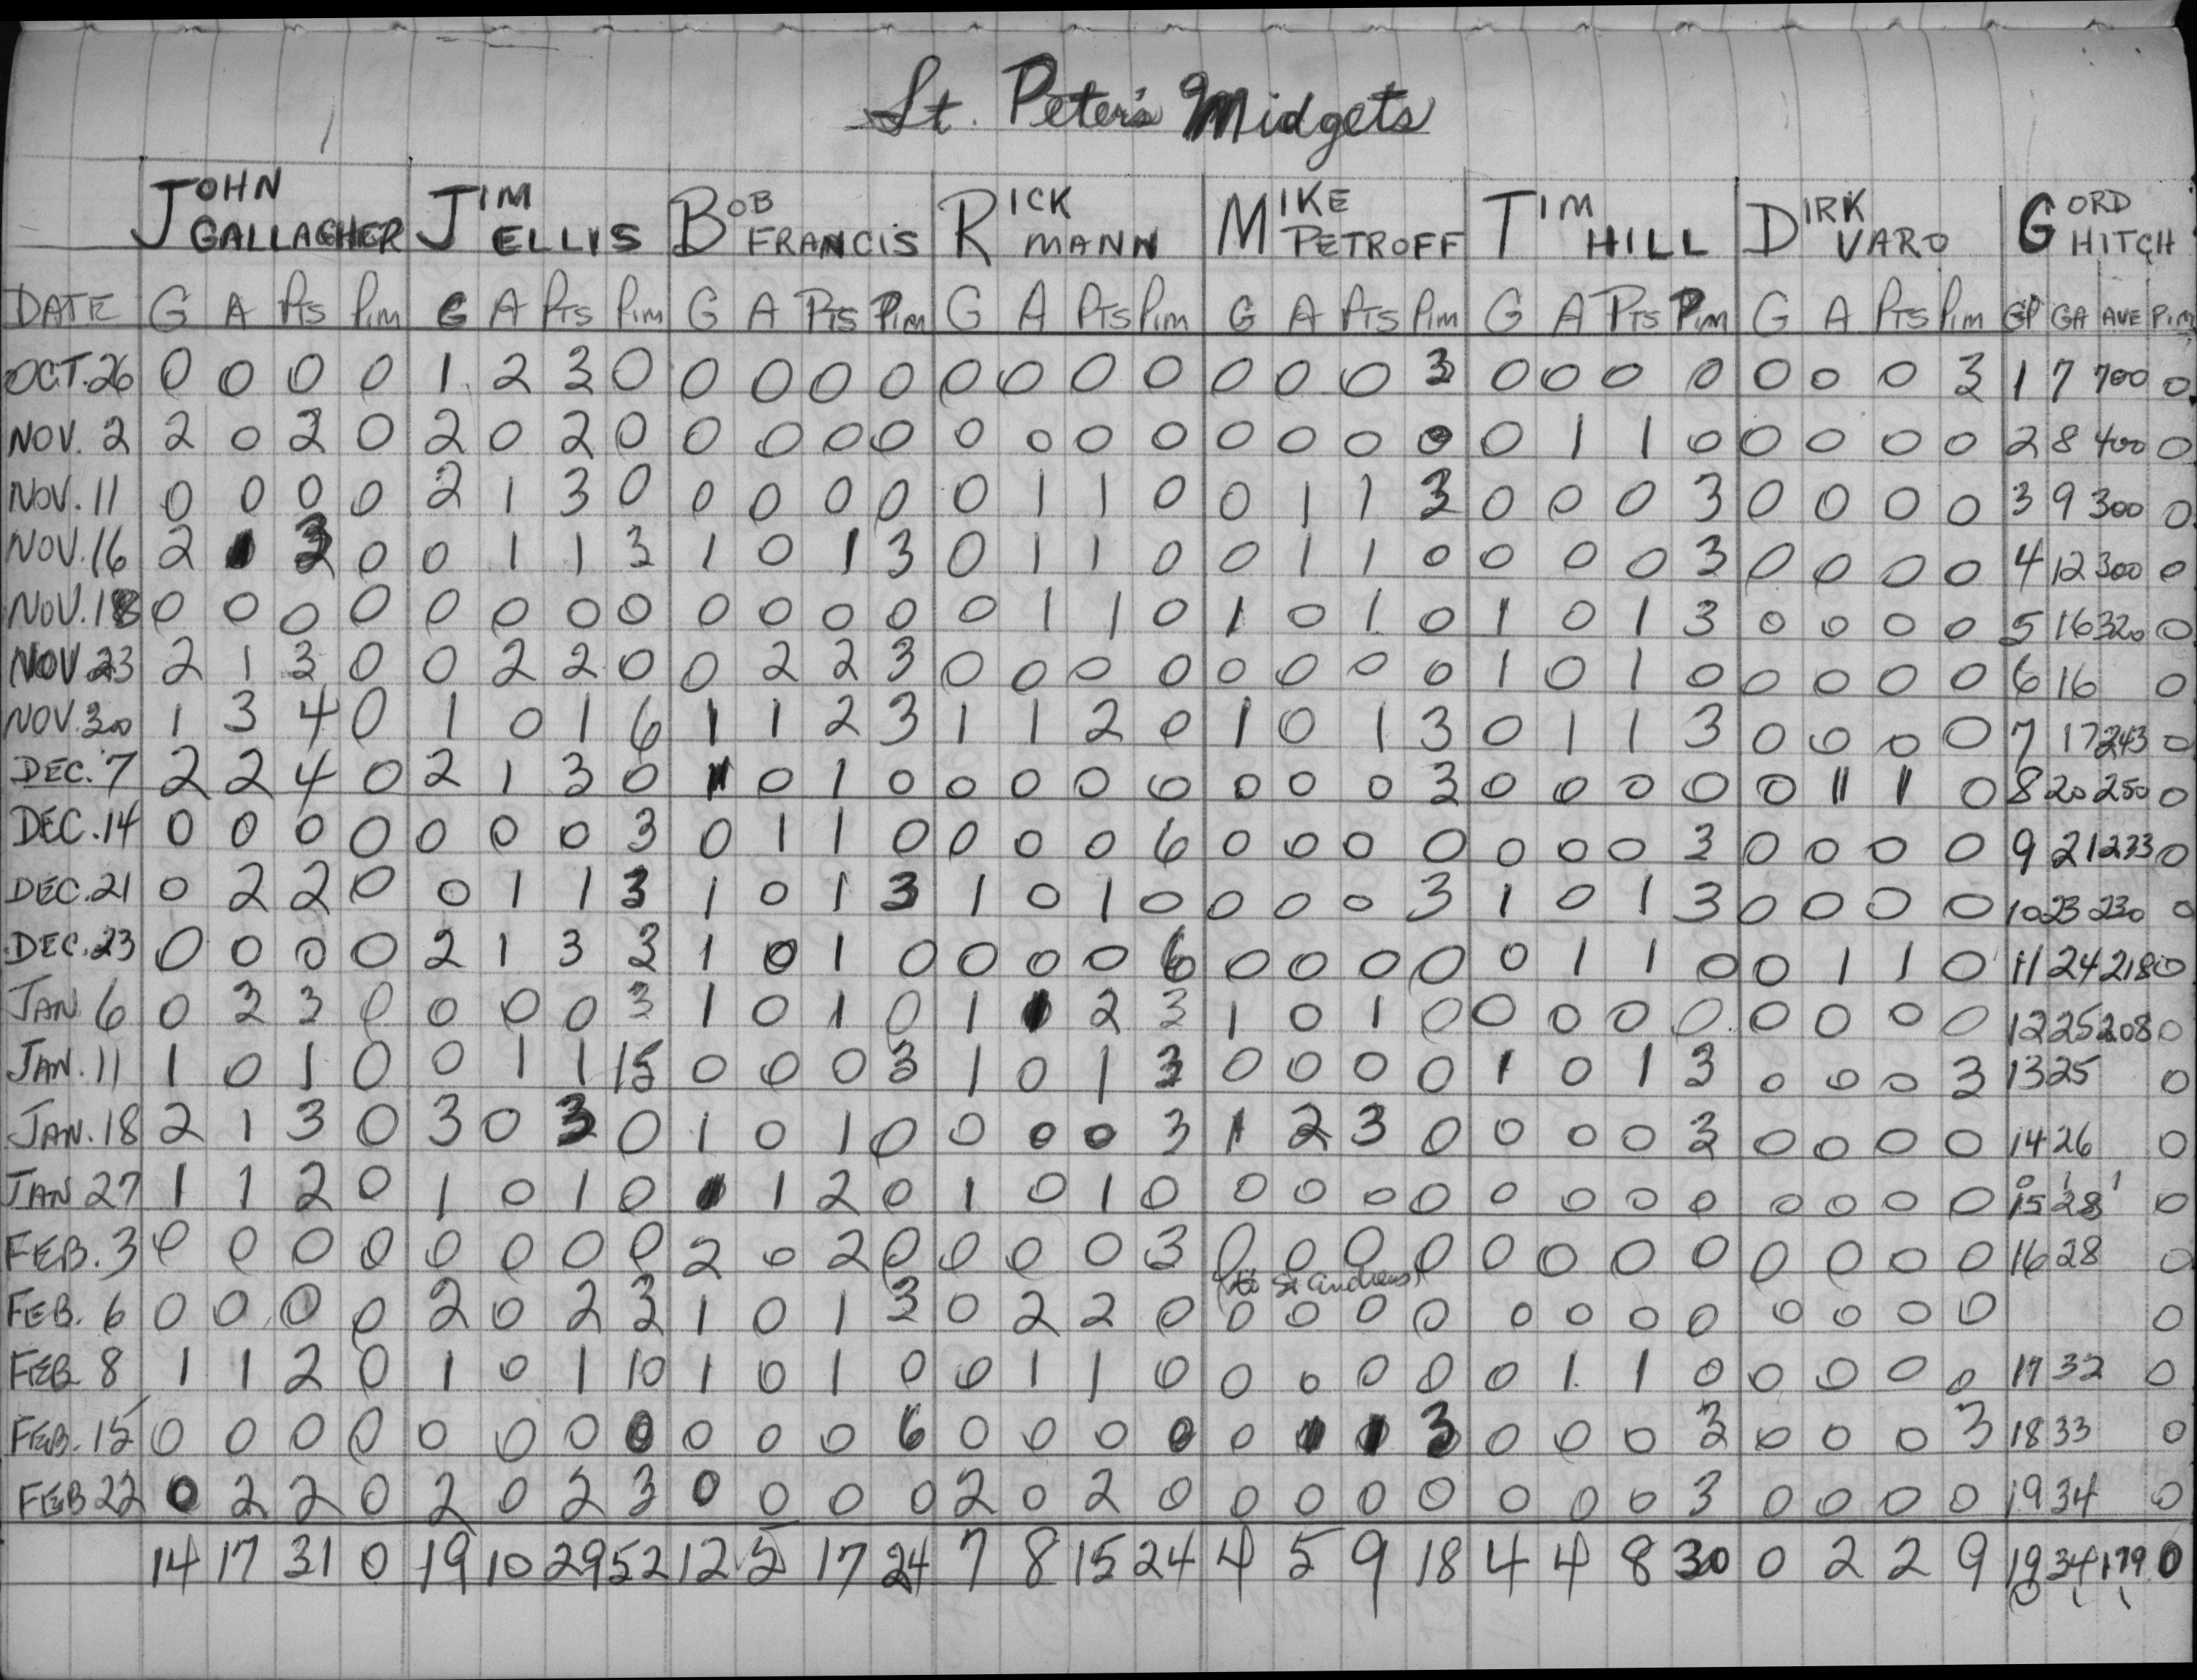 St. Peter's Midgets
JOHN GALLAGHER JIM ELLIS BOB FRANCIS RICK MANN MIKE PETROFF TIM HILL DIRK VARO GORD HITCH
DATE G A PTS PIM G A PTS PIM G A PTS PIM G A PTS PIM G A PTS PIM G A PTS PIM G A PTS PIM GP GA AVE PIM
OCT. 26 0 0 0 0 1 2 3 0 0 0 0 0 0 0 0 0 0 0 0 3 0 0 0 0 0 0 0 3 1 7 700 0
NOV. 2 2 0 2 0 2 0 2 0 0 0 0 0 0 0 0 0 0 0 0 0 0 1 1 0 0 0 0 0 2 8 400 0
NOV. 11 0 0 0 0 2 1 3 0 0 0 0 0 0 1 1 0 0 1 1 3 0 0 0 3 0 0 0 0 3 9 300 0
NOV. 16 2 1 3 0 0 1 1 3 1 0 1 3 0 1 1 0 0 1 1 0 0 0 0 3 0 0 0 0 4 12 300 0
NOV. 18 0 0 0 0 0 0 0 0 0 0 0 0 0 1 1 0 1 0 1 0 1 0 1 3 0 0 0 0 5 16 320 0
NOV 23 2 1 3 0 0 2 2 0 0 2 2 3 0 0 0 0 0 0 0 0 1 0 1 0 0 0 0 0 6 16 0
NOV. 30 1 3 4 0 1 0 1 6 1 1 2 3 1 1 2 0 1 0 1 3 0 1 1 3 0 0 0 0 7 17 243 0
DEC. 7 2 2 4 0 2 1 3 0 1 0 1 0 0 0 0 0 0 0 0 3 0 0 0 0 0 1 1 0 8 20 250 0
DEC. 14 0 0 0 0 0 0 0 3 0 1 1 0 0 0 0 6 0 0 0 0 0 0 0 3 0 0 0 0 9 21 233 0
DEC. 21 0 2 2 0 0 1 1 3 1 0 1 3 1 0 1 0 0 0 0 3 1 0 1 3 0 0 0 0 10 23 230 0
DEC. 23 0 0 0 0 2 1 3 3 1 0 1 0 0 0 0 6 0 0 0 0 0 1 1 0 0 1 1 0 11 24 218 0
JAN 6 0 3 3 0 0 0 0 3 1 0 1 0 1 1 2 3 1 0 1 0 0 0 0 0 0 0 0 0 12 25 208 0
JAN. 11 1 0 1 0 0 1 1 15 0 0 0 3 1 0 1 3 0 0 0 0 1 0 1 3 0 0 0 3 13 25 0
JAN. 18 2 1 3 0 3 0 3 0 1 0 1 0 0 0 0 3 1 2 3 0 0 0 0 3 0 0 0 0 14 26 0
JAN 27 1 1 2 0 1 0 1 0 1 1 2 0 1 0 1 0 0 0 0 0 0 0 0 0 0 0 0 0 15 28 0
FEB. 3 0 0 0 0 0 0 0 0 2 0 2 0 0 0 0 3 0 0 0 0 0 0 0 0 0 0 0 0 16 28 0
(to St Andrews)
FEB. 6 0 0 0 0 2 0 2 3 1 0 1 3 0 2 2 0 0 0 0 0 0 0 0 0 0 0 0 0 0
FEB. 8 1 1 2 0 1 0 1 10 1 0 1 0 0 1 1 0 0 0 0 0 0 1 1 0 0 0 0 0 17 32 0
FEB. 15 0 0 0 0 0 0 0 0 0 0 0 6 0 0 0 0 0 1 1 3 0 0 0 3 0 0 0 3 18 33 0
FEB 22 0 2 2 0 2 0 2 3 0 0 0 0 2 0 2 0 0 0 0 0 0 0 0 3 0 0 0 0 19 34 0
14 17 31 0 19 10 29 52 12 5 17 24 7 8 15 24 4 5 9 18 4 4 8 30 0 2 2 9 19 34 1.79 0